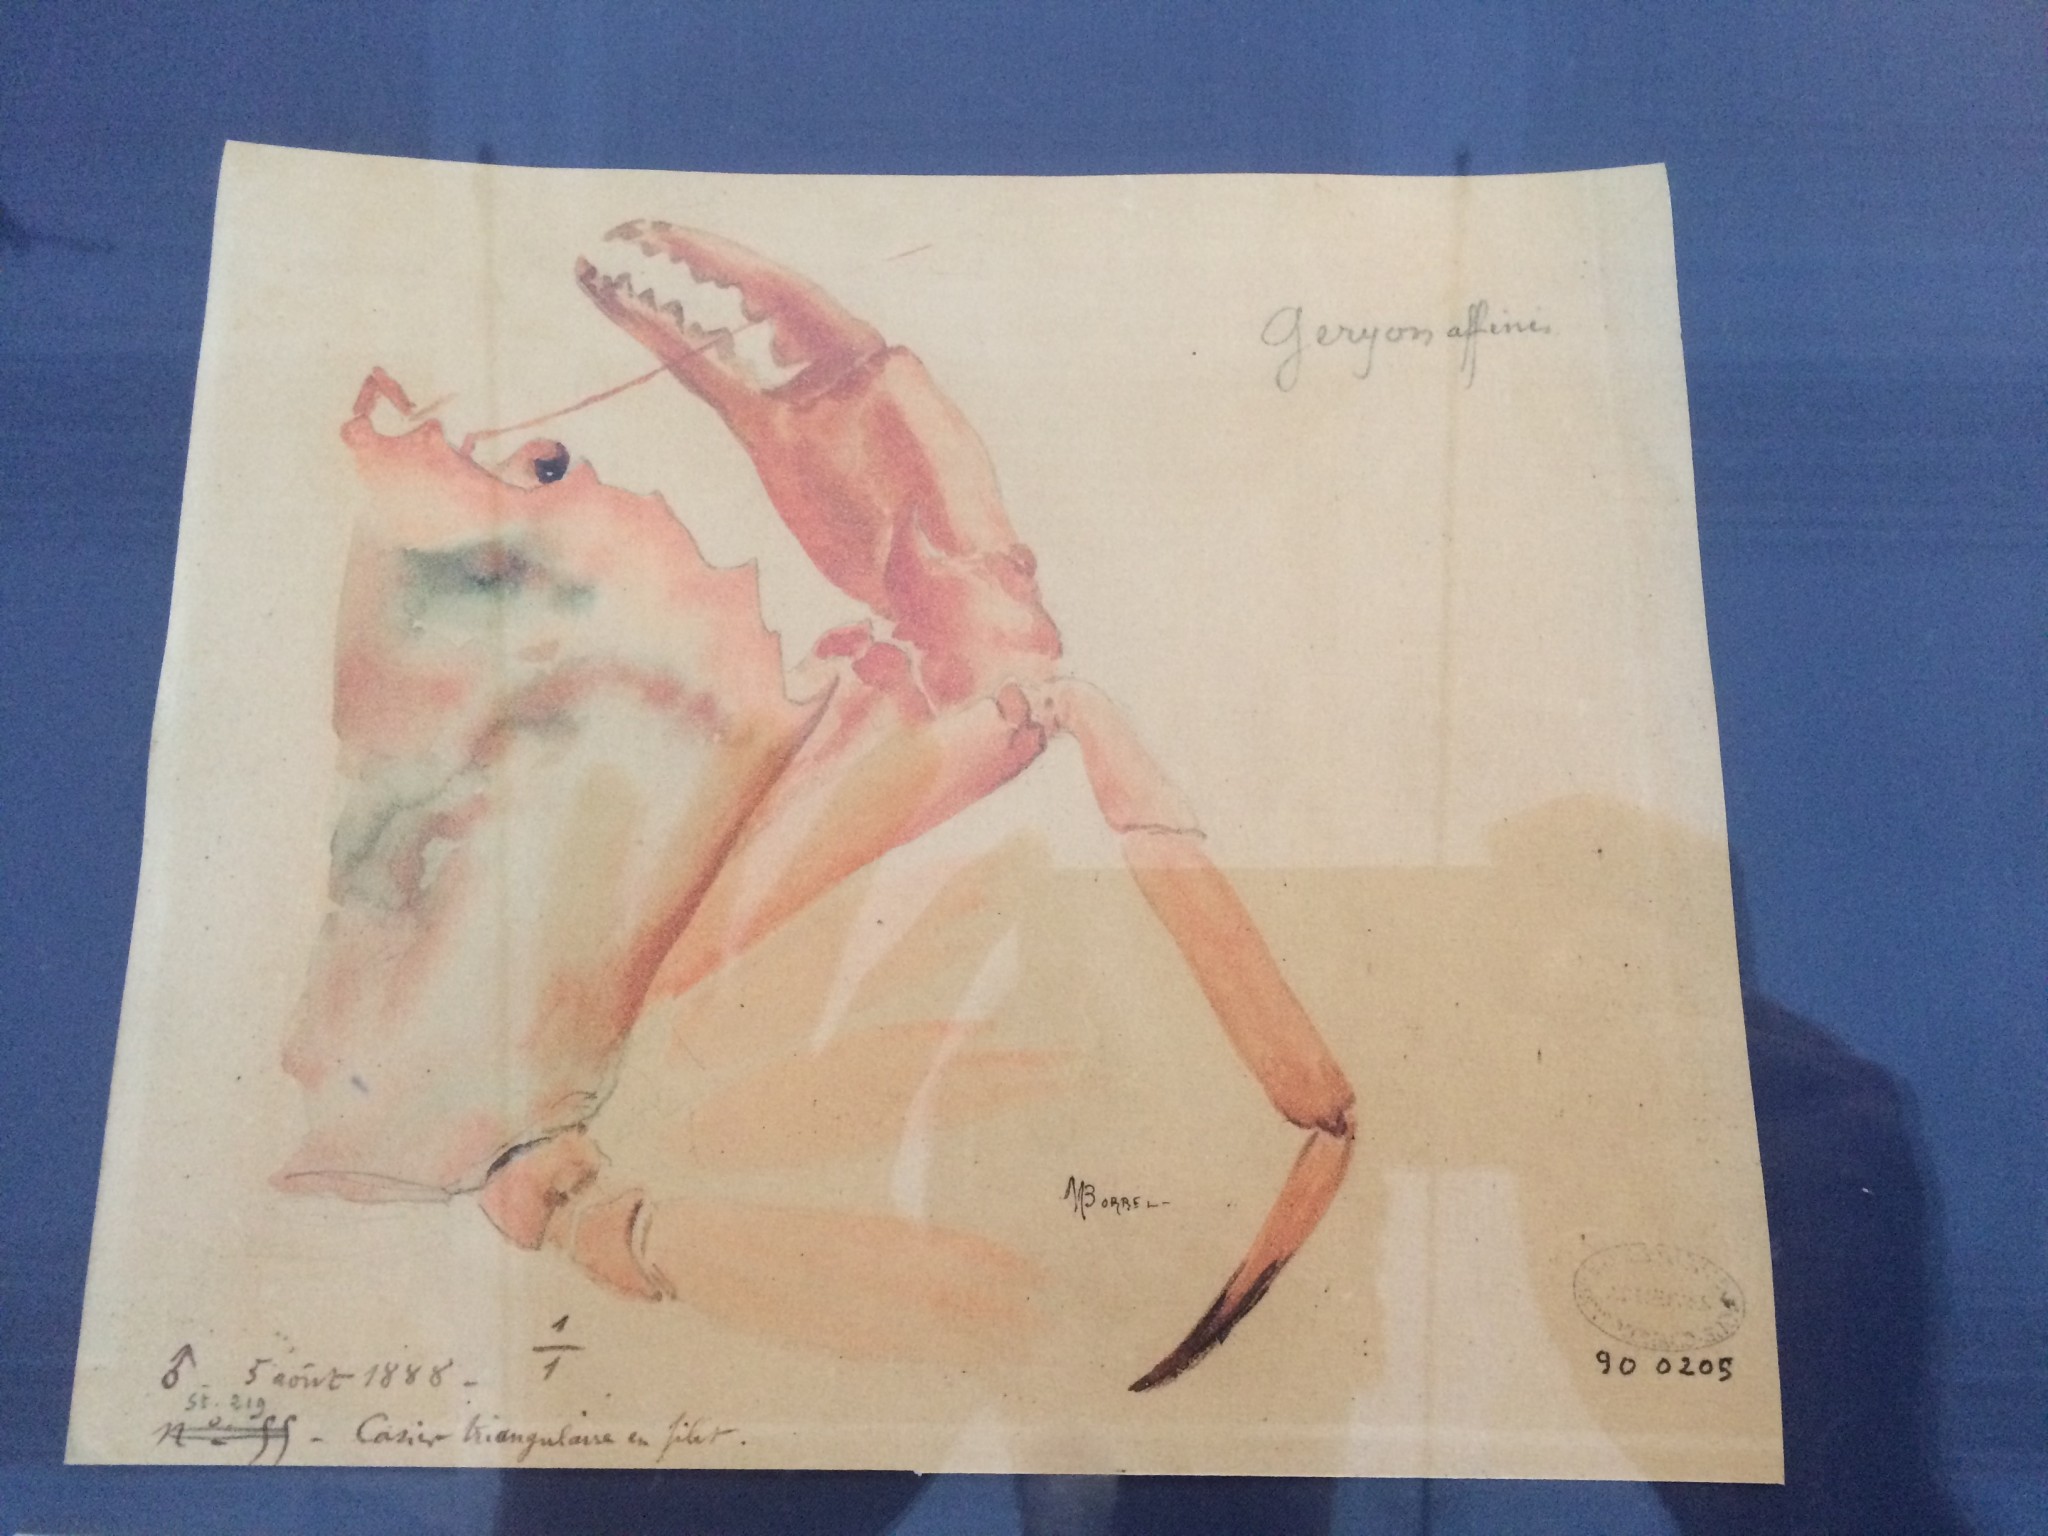 Geryon affinis
M BORREL
90 0205
♂ 5 août 1888 -
1
1
St. 219
n° 55 - Casier triangulaire en filet.